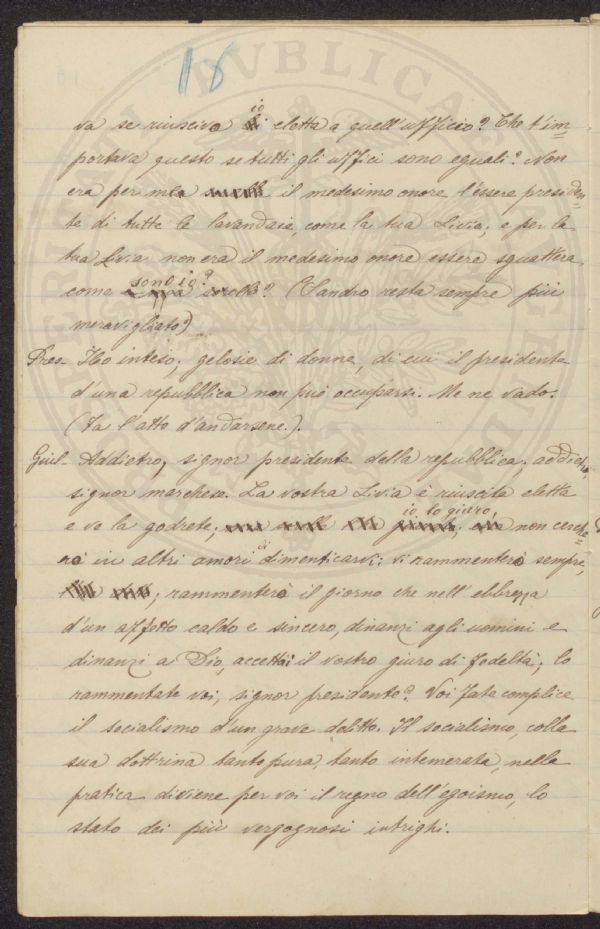 18
va se riusciva io eletta a quell'ufficio? Che t'im=
portava questo se tutti gli uffici sono eguali? Non
era per me il medesimo onore l'essere presiden=
te di tutte le lavandaie, come la tua Livia; e per la
tua Livia non era il medesimo onore essere sguattera,
come sono io? (Sandro resta sempre più
meravigliato)
Pres- Ho inteso; gelosie di donne, di cui il presidente
d'una repubblica non può occuparsi. Me ne vado.
(Fa l'atto d'andarsene.)
Giul- Addietro, signor presidente della repubblica, addietro,
signor marchese. La vostra Livia è riuscita eletta
e ve la godrete; io, lo giuro, non cerche=
rò in altri amori di dimenticarvi; vi rammenterò sempre,
rammenterò il giorno che nell'ebbrezza
d'un affetto caldo e sincero, dinanzi agli uomini e
dinanzi a Dio, accettai il vostro giuro di fedeltà; lo
rammentate voi, signor presidente? Voi fate complice
il socialismo d'un grave delitto. Il socialismo, colla
sua dottrina tanto pura, tanto intemerata, nella
pratica diviene per voi il regno dell'egoismo, lo
stato dei più vergognosi intrighi.